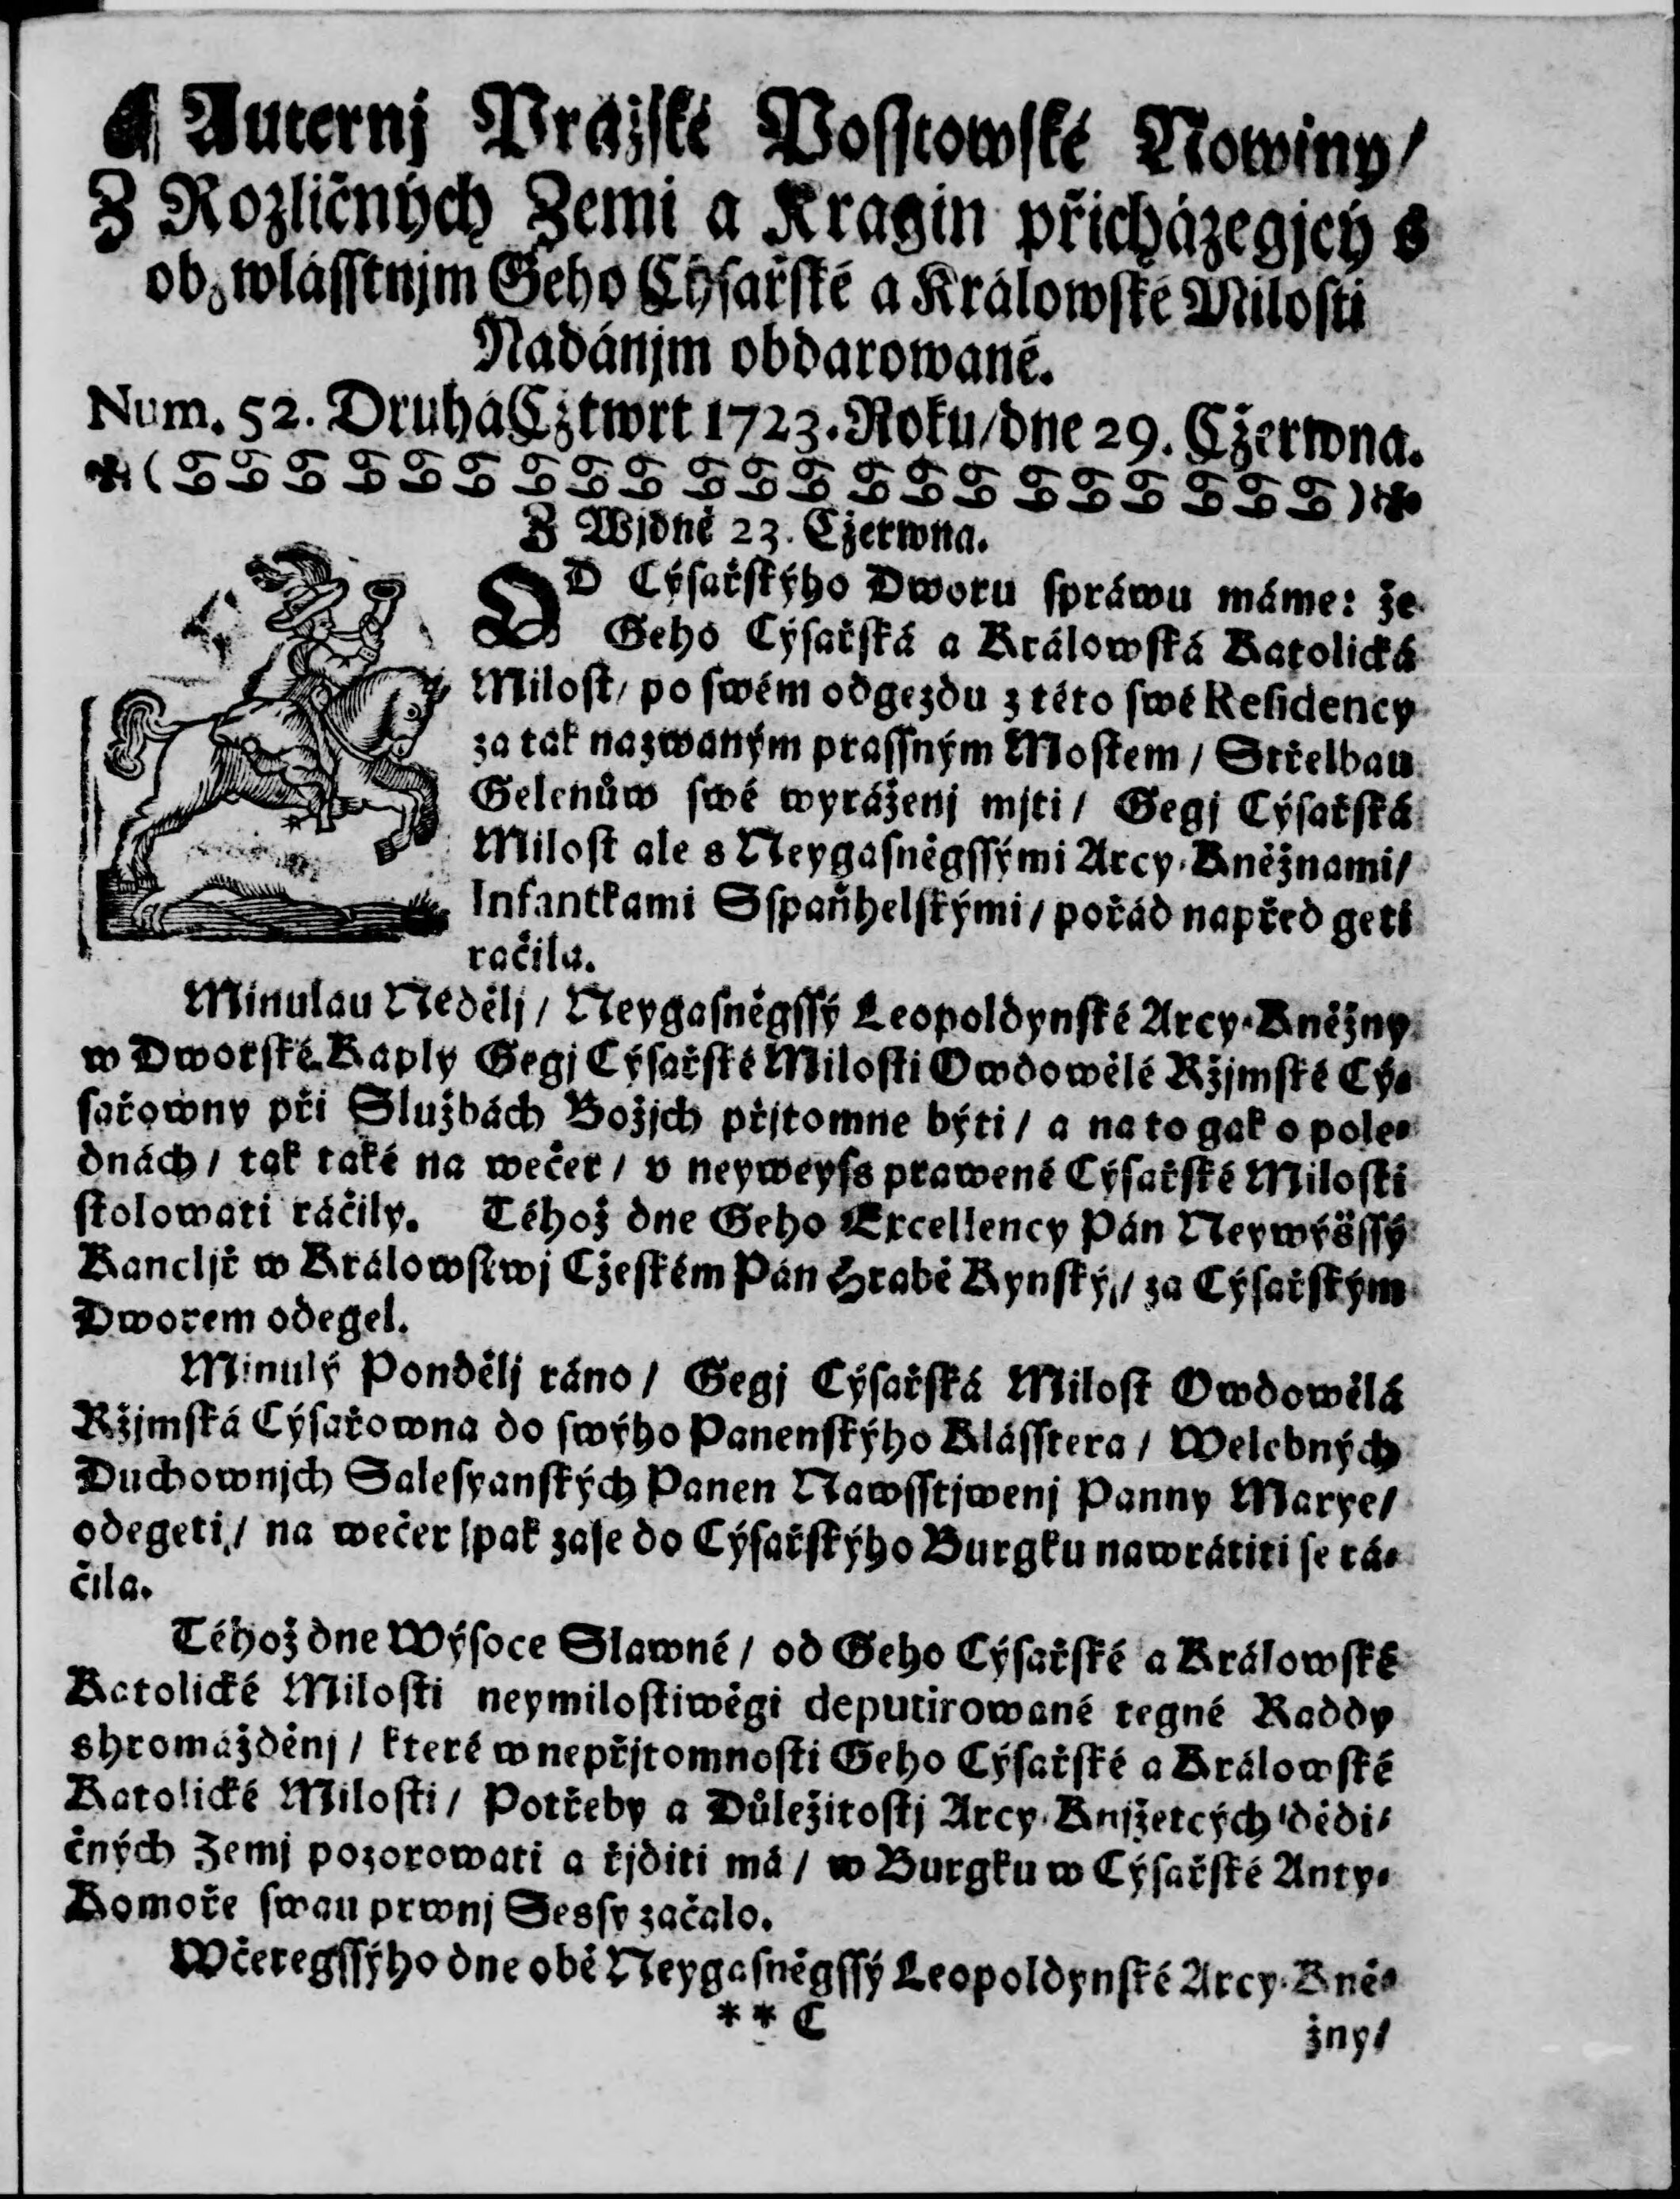 Auternj Pražské Posstowské Nowiny/
Z Rozličných Zemi a Kragin přicházegjcý s
obzwlásstnjm Geho Cýsařské a Králowské Milosti
Nadánjm obdarowané.
Num. 52. Druhá Cžtwrt 1723. Roku/ dne 29. Cžerwna.
Z Wjdně 23. Cžerwna.
OD Cýsařskýho Dworu spráwu máme: že
Geho Cýsařská a Králowská Katolická
Milost/ po swém odgezdu z této swé Residency
za tak nazwaným prassným Mostem / Střelbau
Gelenůw swé wyráženj mjti / Gegj Cýsařská
Milost ale s Neygasněgssými Arcy-Kněžnami/
Infantkami Sspaňhelskými / pořád napřed geti
račila.
Minulau Nedělj / Neygasněgssý Leopoldynské Arcy-Kněžny
w Dworské Kaply Gegj Cýsařské Milosti Owdowělé Ržjmské Cý-
sařowny při Službách Božjch přjtomne býti / a na to gak o pole-
dnách / tak také na wečer / v neyweyss prawené Cýsařské Milosti
stolowati ráčily. Téhož dne Geho Excellency Pán Neywýšssý
Kancljř w Králowstwj Cžeském Pán Hrabě Kynský / za Cýsařským
Dworem odegel.
Minulý Pondělj ráno / Gegj Cýsařská Milost Owdowělá
Ržjmská Cýsařowna do swýho Panenskýho Klásstera / Welebných
Duchownjch Salesyanských Panen Nawsstjwenj Panny Marye/
odegeti / na wečer pak zase do Cýsařskýho Burgku nawrátiti se rá-
čila.
Téhož dne Wýsoce Slawné / od Geho Cýsařské a Králowské
Katolické Milosti neymilostiwěgi deputirowané tegné Raddy
shromážděnj / které w nepřjtomnosti Geho Cýsařské a Králowské
Katolické Milosti / Potřeby a Důležitostj Arcy-Knjžetcých dědi-
čných Zemj pozorowati a řjditi má / w Burgku w Cýsařské Anty-
Komoře swau prwnj Sessy začalo.
Wčeregssýho dne obě Neygasněgssý Leopoldynské Arcy-Kně-
* * C
žny/